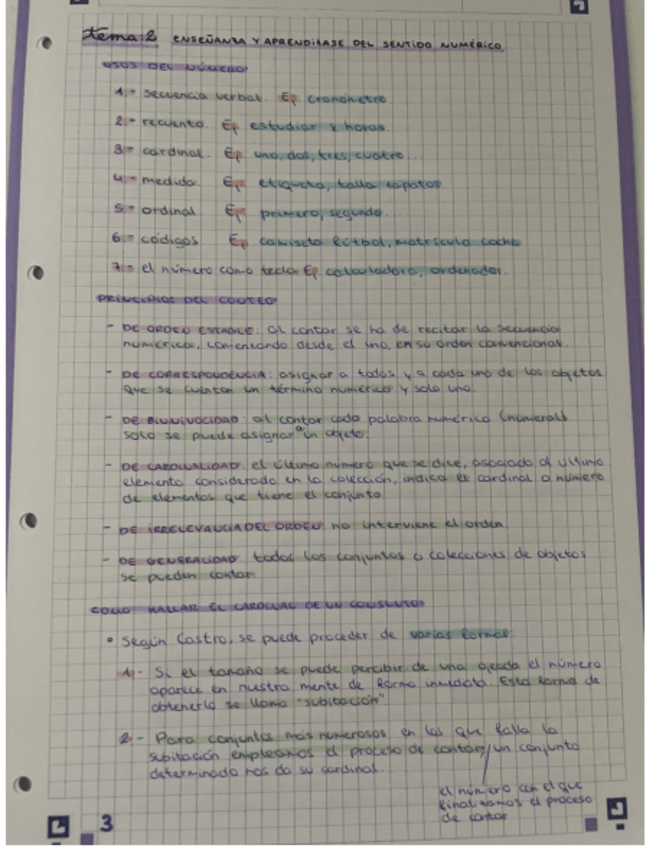 tema 2 ENSEÑANZA Y APRENDIZAJE DEL SENTIDO NUMÉRICO
USOS DEL NÚMERO
1.- secuencia verbal. Ep. cronometro
2.- recuento. Ep estudiar x horas
3.- cardinal. Ep uno, dos, tres, cuatro...
4.- medida Ep etiqueta, talla zapatos
5.- ordinal Ep primero, segundo...
6.- códigos Ep camiseta fútbol, matrícula coche
7.- el número como tecla Ep calculadora, ordenador.
PRINCIPIOS DEL CONTEO
- DE ORDEN ESTABLE: al contar se ha de recitar la secuencia
numérica, comenzando desde el uno, en su orden convencional.
- DE CORRESPONDENCIA: asignar a todos y a cada uno de los objetos
que se cuentan un término numérico y solo uno.
- DE BIUNIVOCIDAD: al contar cada palabra numérica (numeral)
solo se puede asignar a un objeto.
- DE CARDINALIDAD: el último número que se dice, asociado al último
elemento considerado en la colección, indica el cardinal o número
de elementos que tiene el conjunto.
- DE IRRELEVANCIA DEL ORDEN: no interviene el orden.
- DE GENERALIDAD: todos los conjuntos o colecciones de objetos
se pueden contar
COMO HALLAR EL CARDINAL DE UN CONJUNTO
• Según Castro, se puede proceder de varias formas:
1.- Si el tamaño se puede percibir de una ojeada el número
aparece en nuestra mente de forma inmediata. Esta forma de
obtenerlo se llama "subitación"
2.- Para conjuntos más numerosos en los que falla la
subitación empleamos el proceso de contar, un conjunto
determinado nos da su cardinal.
el número con el que
finalizamos el proceso
de contar
3